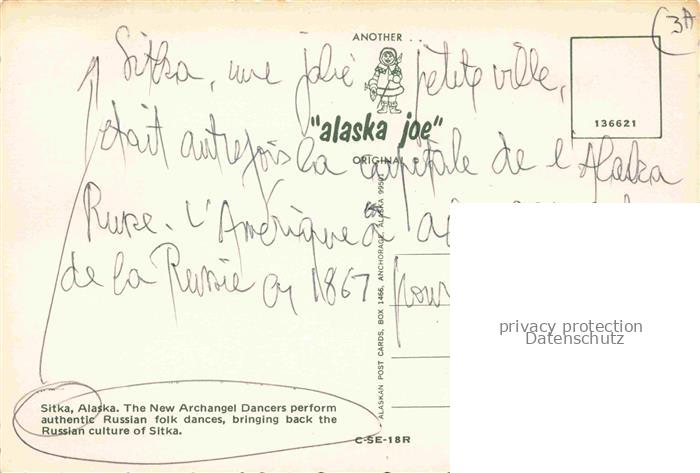 (3A
ANOTHER
Sitka, une jolie petite ville,
136621
"alaska joe"
était autrefois la capitale de l'Alaska
ORIGINAL ©
Russe. L'Amérique a
de la Russie en 1867 pour
ALASKAN POST CARDS, BOX 1466, ANCHORAGE, ALASKA 99501
privacy protection
Datenschutz
Sitka, Alaska. The New Archangel Dancers perform
authentic Russian folk dances, bringing back the
Russian culture of Sitka.
C-SE-18R